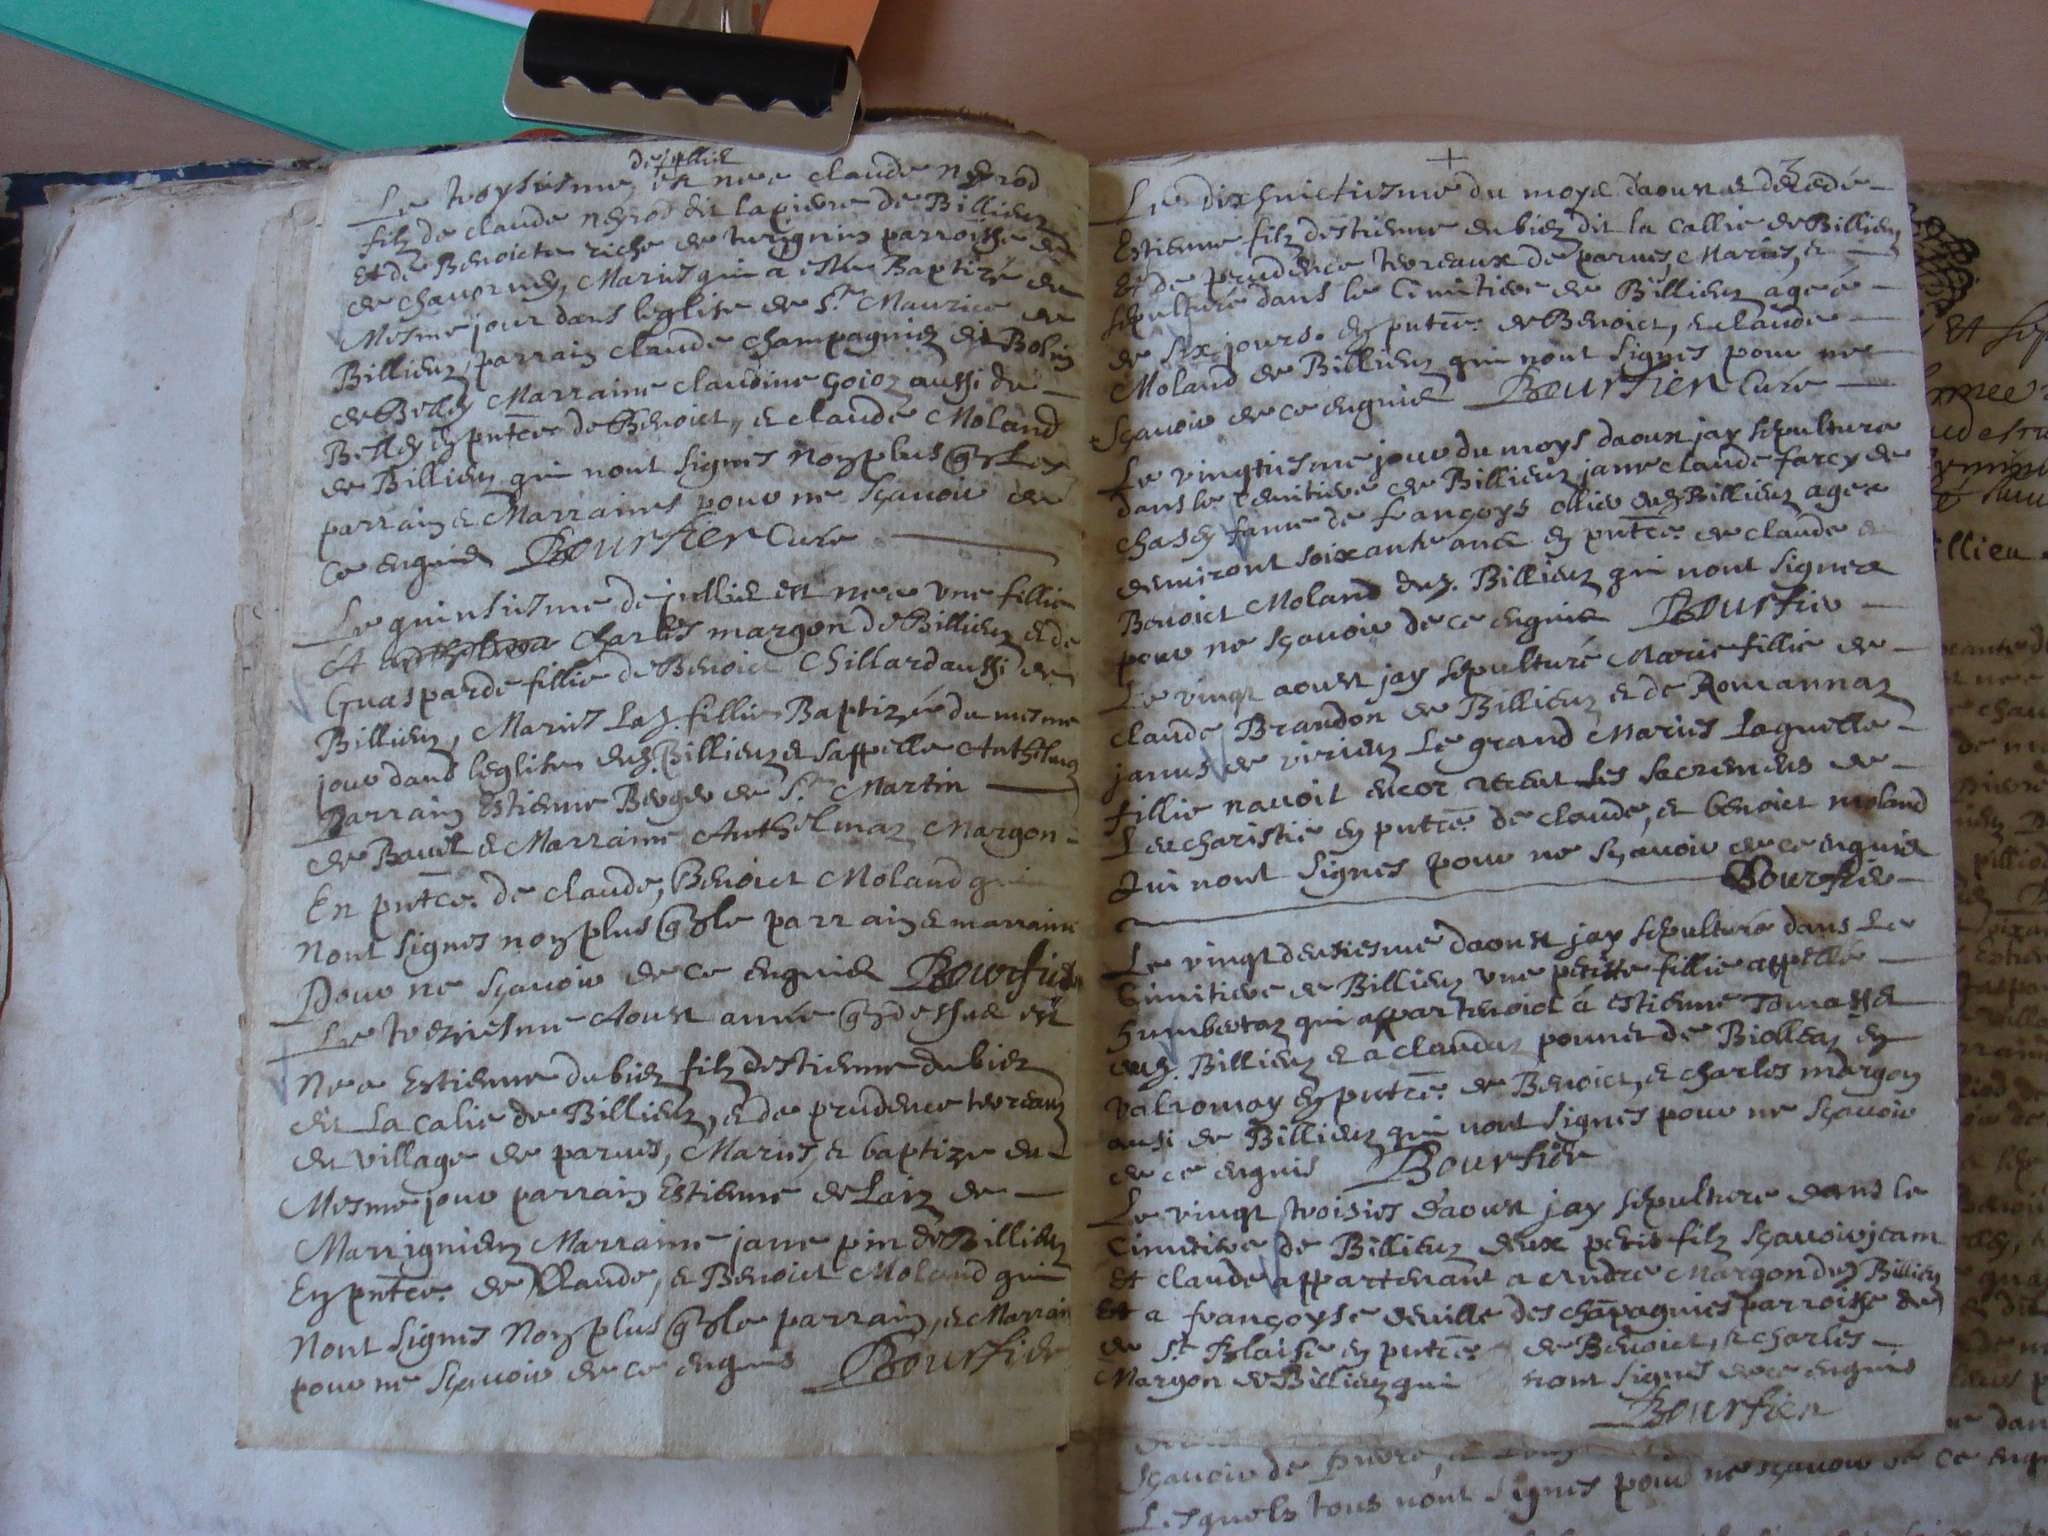 de jullie
Le troysiesme est nee claude neyrod
filz de claude neyrod dit lapierre de Billieu
Et de Benoicte riche de turignin parroisse
de chavorney, Mariés qui a esté Baptizé du
Mesme jour dans leglise de St Maurice de
Billieu, parrain claude champagniez dit Bolin
de Belley Marraine claudine goioz aussi de
Belley en pntce de Benoict, et claude Moland
de Billieu qui nont signes non plus que Les
parrain et Marraines pour ne sçavoir de
ce enquis Boursier Curé
Le quinsiesme de jullie est nee une fillie
A Charles margon de Billieu et de
Guasparde fillie de Benoict Chillard aussi de
Billieu, Mariés Lad. fillie Baptizée du mesme
jour dans leglise dud. Billieu et sappelle Anthelmaz
Parrain Estienne Berger de St Martin
de Bavel et Marraine Anthelmaz Margon
En pntce de claude, Benoict Moland qui
Nont signes non plus que le parrain et marraine
Pour ne sçavoir de ce enquis Boursier
Le treziesme Aoust année que dessus est
Nee Estienne dubiez filz destienne dubiez
dit La calie de Billieu, et de prudence terreaux
du village de parves, Mariés, et baptize du
Mesme jour parrain Estienne de Laiz de
Marrignieu Marraine jane pin de Billieu
En pntce de Claude, et Benoict Moland qui
Nont signes Non plus que le parrain, et Marrain
pour ne sçavoir de ce enquis Boursier
3
Le dix huictiesme du moys daoust est decedé
Estienne filz destienne dubiez dit la callie de Billieu
Et de prudence terreaux de parves, Mariés, et
sepulturé dans le Cimitiere de Billieu ageé
de six jours. En pntce de Benoict, et claude
Moland de Billieu qui nont signes pour ne
sçavoir de ce enquis Boursier Curé
Le vingtiesme jour du moys daoust jay sepulture
dans le Cemitiere de Billieu jane claude farcy de
chasey fame de françoys ollier dud Billieu agee
denviront soixante ans en pntce de claude et
Benoict Moland dud. Billieu qui nont signer
pour ne sçavoir de ce enquis Boursier
Le vingt aoust jay sepulturé Marie fillie de
claude Brandon de Billieu et de Romannaz
janus de virieu Le grand Mariés Laquelle
fillie navoit encor receut Les sacremens de
Leucharistie en pntce de claude, et benoict moland
Qui nont signes pour ne sçavoir de ce enquis
Boursier
Le vingt deusiesme daoust jay sepulturé dans Le
Cimitiere de Billieu une petitte fillie appellée
humbertaz qui appartenoict á estienne Tomasset
dud. Billieu et a claudaz ponnet de Biolleaz en
valromay en pntce de Benoict, et charles margon
aussi de Billieu qui nont signes pour ne sçavoir
de ce enquis Boursier
Le vingt troisies daoust jay sepulture dans le
Cimitiere de Billieu deux petis filz sçavoir jeam
et claude appartenant a Andre Margon dud Billieu
Et a françoyse deville des chãpagnies parroisse de
de St Blaise en pntce de Benoict, et charles
Margon de Billieu qui nont signes de ce enquis
Boursier
Lesquels tous nont signes pour ne sçavoir de ce enqu